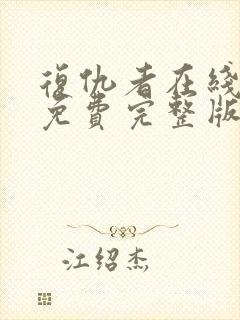 復仇者在綫
免費完整版
江紹杰